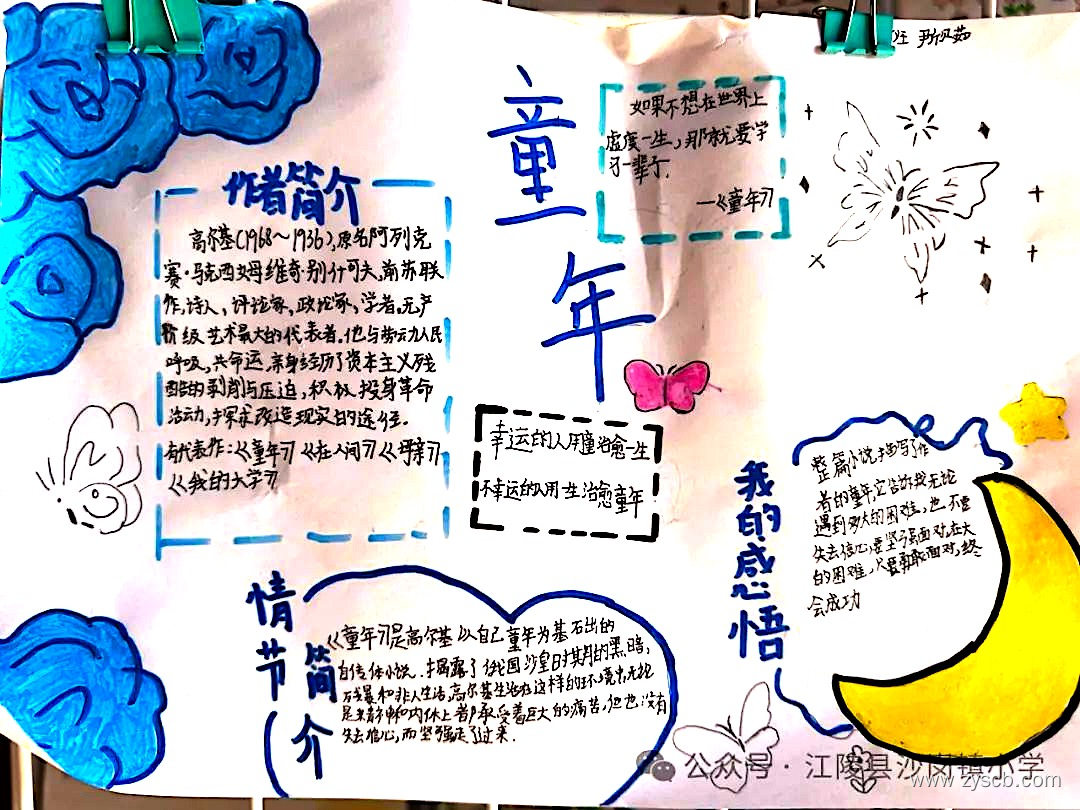 童年
如果不想在世界上
虚度一生,那就要学
习一辈子.
—《童年》
作者简介
高尔基(1968～1936),原名阿列克
赛·马克西姆维奇·别什可夫,前苏联
作,诗人,评论家,政论家,学者。无产
阶级艺术最大的代表者。他与劳动人民
呼吸,共命运,亲身经历了资本主义残
酷的剥削与压迫,积极投身革命
活动,探求改造现实的途径.
有代表作:《童年》《在人间》《母亲》
《我的大学》
幸运的人用童治愈一生
不幸运的人用一生治愈童年
我的感悟
整篇小说描写了作
者的童年,它告诉我无论
遇到多大的困难,也不要
失去信心,要坚强面对,在大
的困难,只要勇敢面对,终
会成功
情节简介
《童年》是高尔基以自己童年为基石出的
自传体小说.揭露了俄国沙皇时期的黑暗,
残暴和非人生活,高尔基生活在这样的环境中,无论
是精神和肉体上都承受着巨大的痛苦,但也没有
失去信心,而坚强走了过来.
公众号·江陵县沙岗镇小学
www.zyscb.com